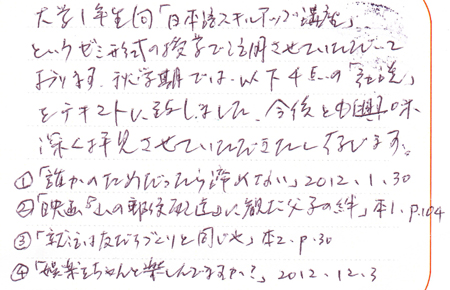 大学1年生向「日本語スキルアップ講座」
というゼミ形式の授業で活用させていただいて
おります。秋学期では、以下4点の「社説」
をテキストに致しました。今後とも興味
深く拝見させていただきたく存じます。
①「誰かのためだったら諦めない」2012.1.30
②「映画『山の郵便配達』に観た父子の絆」本1.p.104
③「就活は友だちづくりと同じや」本2.p.30
④「娯楽をちゃんと楽しんでますか?」2012.12.3